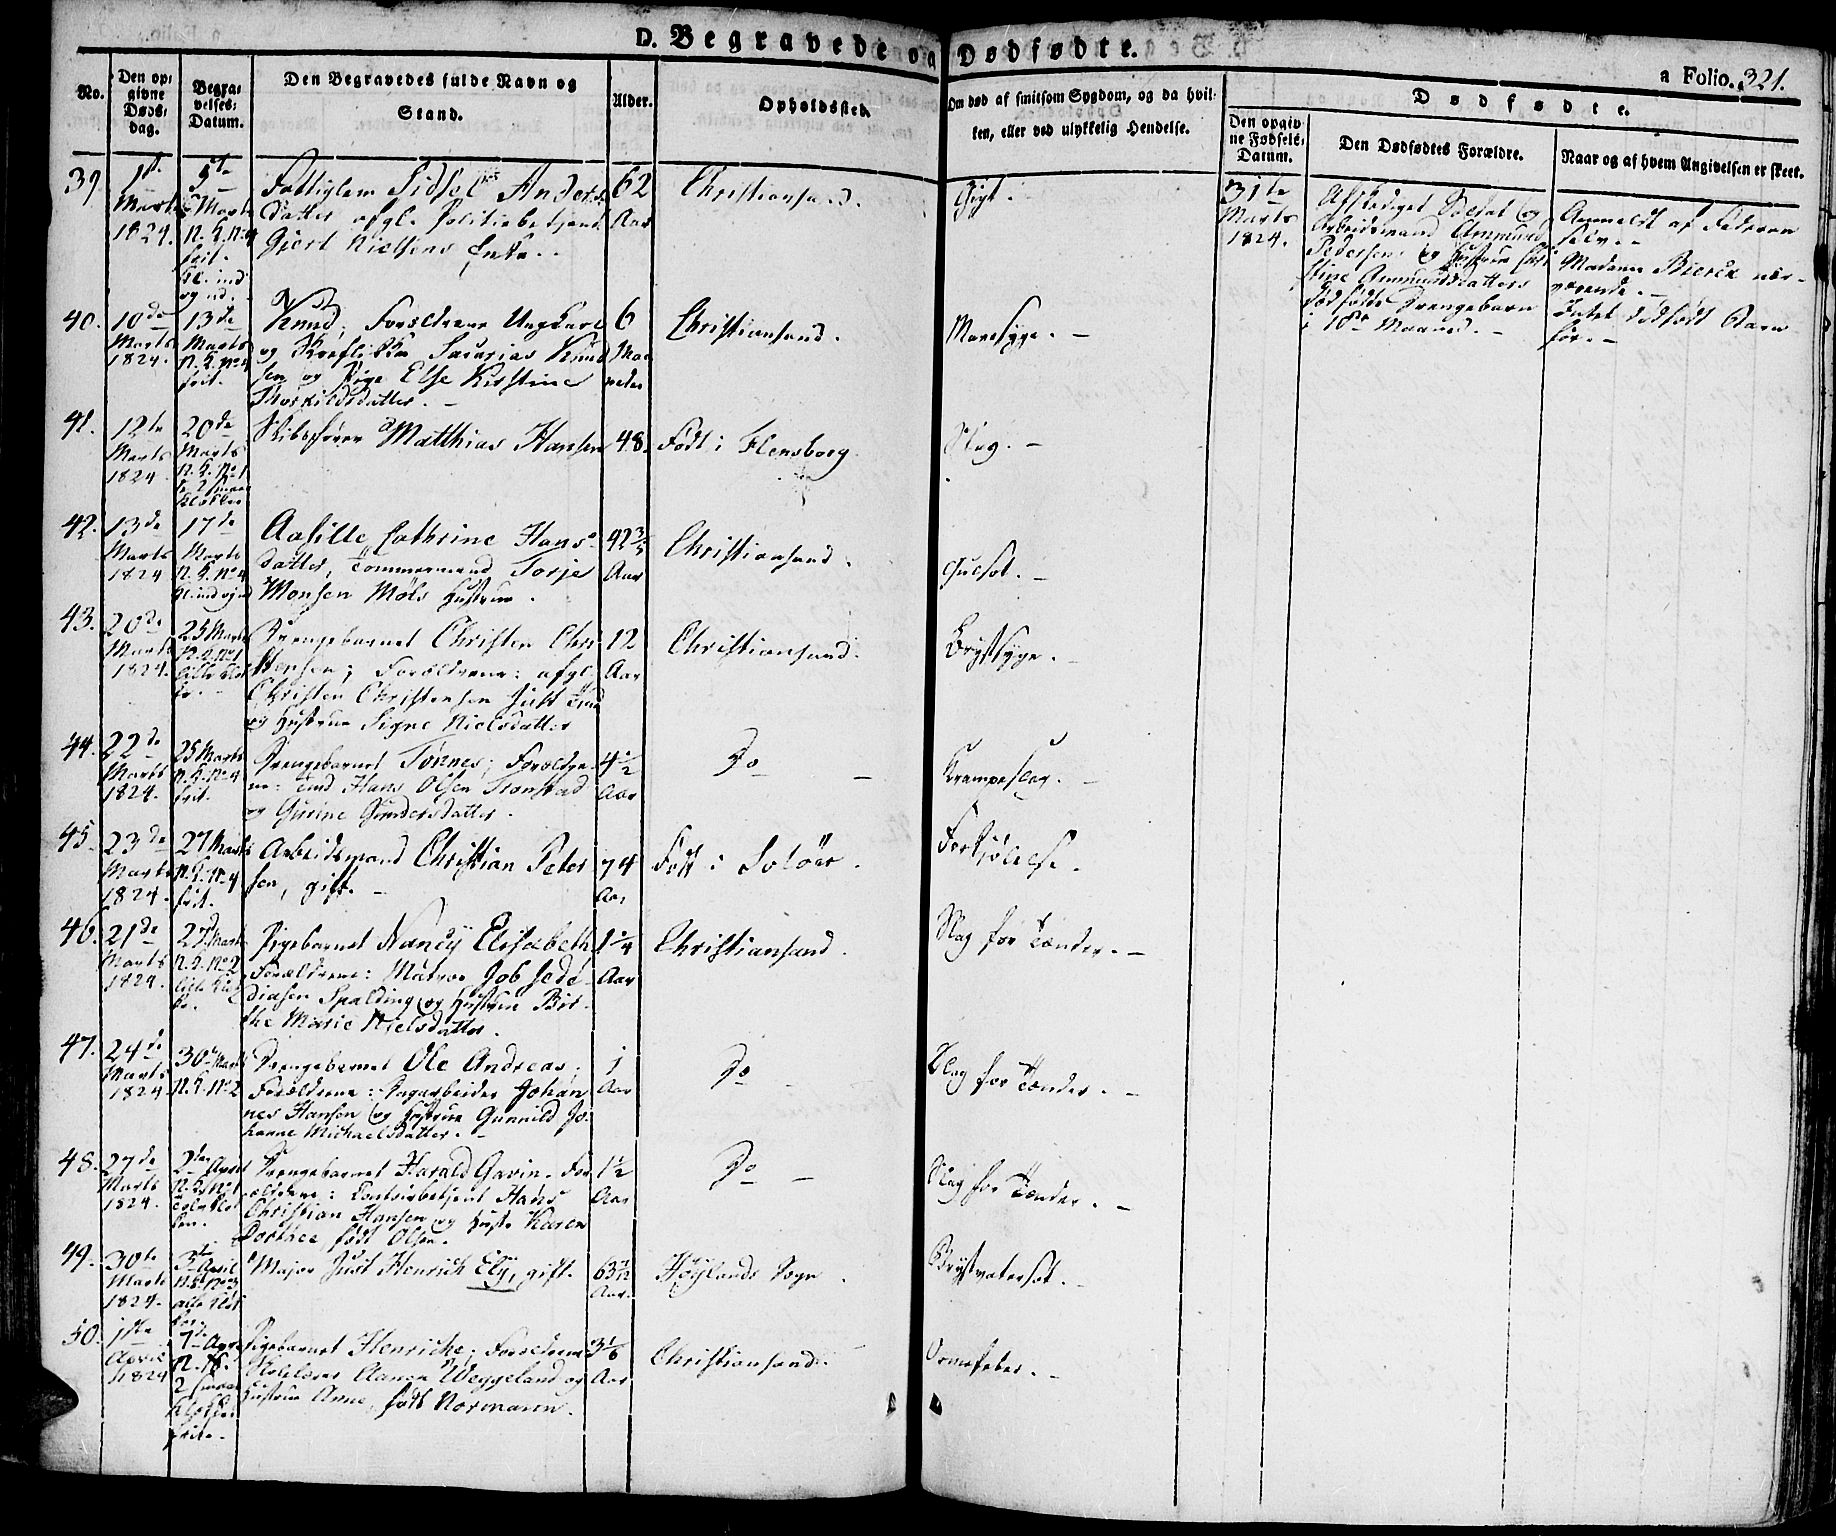 D. Begravede og Dødfødte.
a Folio. 321.
No.
Den op-
givne
Døds-
dag.
Begra-
velses-
Datum.
Den Begravedes fulde Navn og
Stand.
Alder.
Opholdssted.
Om død af smitsom Sygdom, og da hvil-
ken, eller ved ulykkelig Hendelse.
Dødfødte.
Den opgiv-
ne Fødsels-
Datum.
Den Dødfødtes Forældre.
Naar og af hvem Angivelsen er skeet.
39.
1ste
Marts
1824.
5te
Marts
frit.
Kl. ind
og ud.
Fattiglem Sidsel Anders
datter afgl. Politiebetjent
Gjert Nielsens Enke.
62
Aar
Christiansand.
Gigt.
31te
Marts
1824.
Afskediget Soldat og
Arbeidsmand Ammund
Pedersens og Hustrue
Ammundsdatters
dødfødte Drengebarn
i 10de Maaned.
Anmeldt af Faderen
selv.
Madame Bierck nær-
værende.
Intet dødfødt Barn
før.
40.
10de
Marts
1824.
13de
Marts
N. K. No 4
frit.
Knud; Forældrene Ungkarl
og Sacarias Knud
sen og Pige Else Kirstine
Thorkildsdatter.
6
Maa
neder
Christiansand.
Mavesyge.
41.
12te
Marts
1824.
20de
Marts
N. K. No 1
2 smaae
Klokker
Skibsfører Matthias Hansen
48.
Født i Flensborg.
Slag.
42.
13de
Marts
1824
17de
Marts
N. K. No 4
Kl. ind og ud
Aasille Cathrine Hans-
datter, Tømmermand Torje
Monsen Møls Hustrue.
42
Aar
Christiansand.
Guulsot.
43.
20de
Marts
1824.
25 Marts
N. K. No 1
lille Klok
ke.
Drengebarnet Christen Chri-
stensen; Forældrene: afgl.
Christen Christensen
og Hustrue Signe Nielsdatter
12
Aar
Christiansand.
Brystsyge.
44.
22de
Marts
1824.
25 Marts
N. K. No 4
frit.
Drengebarnet Tønnes; Forældre-
ne: Hans Olsen Tronstad
og Gurine Gundersdatter.
4 1/2
Aar
Do
Krampeslag.
45.
23de
Marts
1824.
27 Marts
N. K. No 4
frit.
Arbeidsmand Christian Peter
sen, gift.
74
Aar
Født i Soløer.
Forkjølelse.
46.
21de
Marts
1824.
27 Marts
N. K. No 2
lille Klok
ke.
Pigebarnet Nancy Elisabeth
Forældrene: Matros Job
Spalding og Hustrue Bir-
the Marie Nielsdatter.
1 1/4
Aar
Christiansand.
Slag for Tænder.
47.
24de
Marts
1824
30 Marts
N. K. No 2
Drengebarnet Ole Andreas;
Forældrene: Dagarbeider Johan
nes Hansen og Hustrue Gunnild Jo-
hanne Michaelsdatter.
1
Aar
Do
Slag for Tænder.
48.
27de
Marts
1824.
2den April
N. K. No 1
Drengebarnet Harald Gavin. For
ældrene: Hans
Christian Hansen og Hustr. Karen
Dorthee, født Olsen.
1 1/2
Aar
Do
Slag for Tænder.
49.
30te
Marts
1824.
3te April
N. K. No 3
alle Klok
ker.
Major Just Henrich Ely, gift.
63
Aar.
Høylands Sogn.
Brystvatersot.
50.
1ste
April
1824
7de April
2 smaae
Klokker
frit.
Pigebarnet Henriche; Forældrene
Skolelærer Aanen Weggeland og
Hustrue Anne, født Normann.
3 1/6
Aar
Christiansand.
Ormefeber.